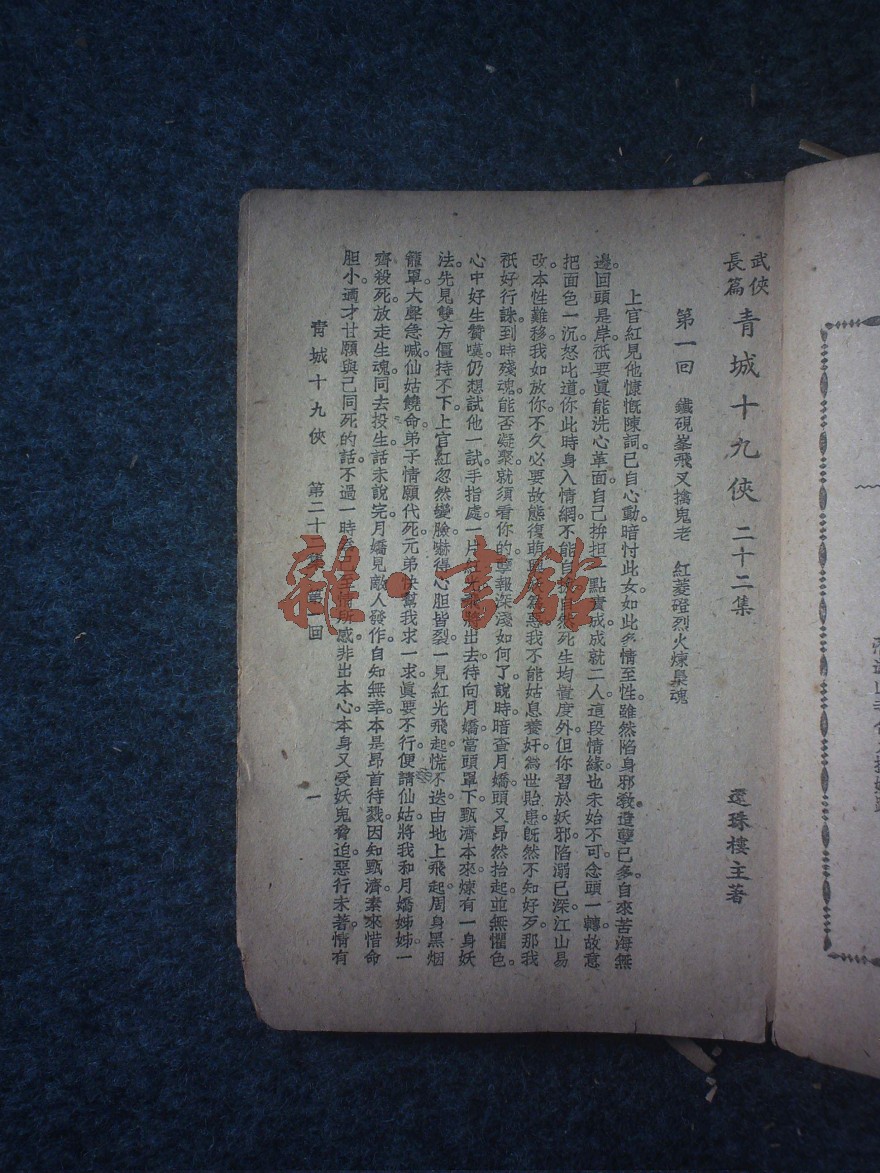 武俠長篇 青城十九俠 二十二集 還珠樓主著
第一回 鐵硯峯飛叉擒鬼老 紅菱磴烈火煉梟魂
上官紅見他慷慨陳詞。已自心動。暗忖此女如此多情至性。雖然陷身邪敎。造孽已多。自來苦海無
邊。回頭是岸。祇要眞能洗心革面。自己拚担一點責成。成就二人這段情緣。也未始不可。念頭一轉。故意
把面色一沉。怒叱道。你此時身入情網。不能自拔。自然死生均置度外。但你習於妖邪。陷溺已深。江山易
改。本性難移。我如放你。不久必要故態復萌。與妖爲惡。我不能姑息養奸。爲世貽患。旣然不知好歹。那我
祇好行誅。到時殘魂能否凝聚。就須看你的孽報深淺如何了。說時暗查月嬌。頭又昂然抬起。並無懼色。
心中好生贊嘆。仍想試他一試。手指處一片紅光飛將出去。待向月嬌當頭罩下。甄濟本來煉有一身妖
法。先見雙方僵持不下。上官紅忽然變臉。嚇得心胆皆裂。一見紅光飛起。慌不迭由地上飛起。周身黑烟
籠罩。大聲急喊。仙姑饒命。弟子情願代死。元弟快幫我求一求。眞要不行。便請仙姑將我和月嬌姊姊一
齊殺死。放走生魂。同去投生。話未說完。月嬌見敵人發作。自知無幸。本是昂首待戮。因知甄濟素來惜命
胆小。適才甘願與己同死的話。不過一時爲己至情所感。非出本心。本身又受妖鬼脅迫。惡行未著。情有
青城十九俠 第二十二集 第一回 一
雜·書館